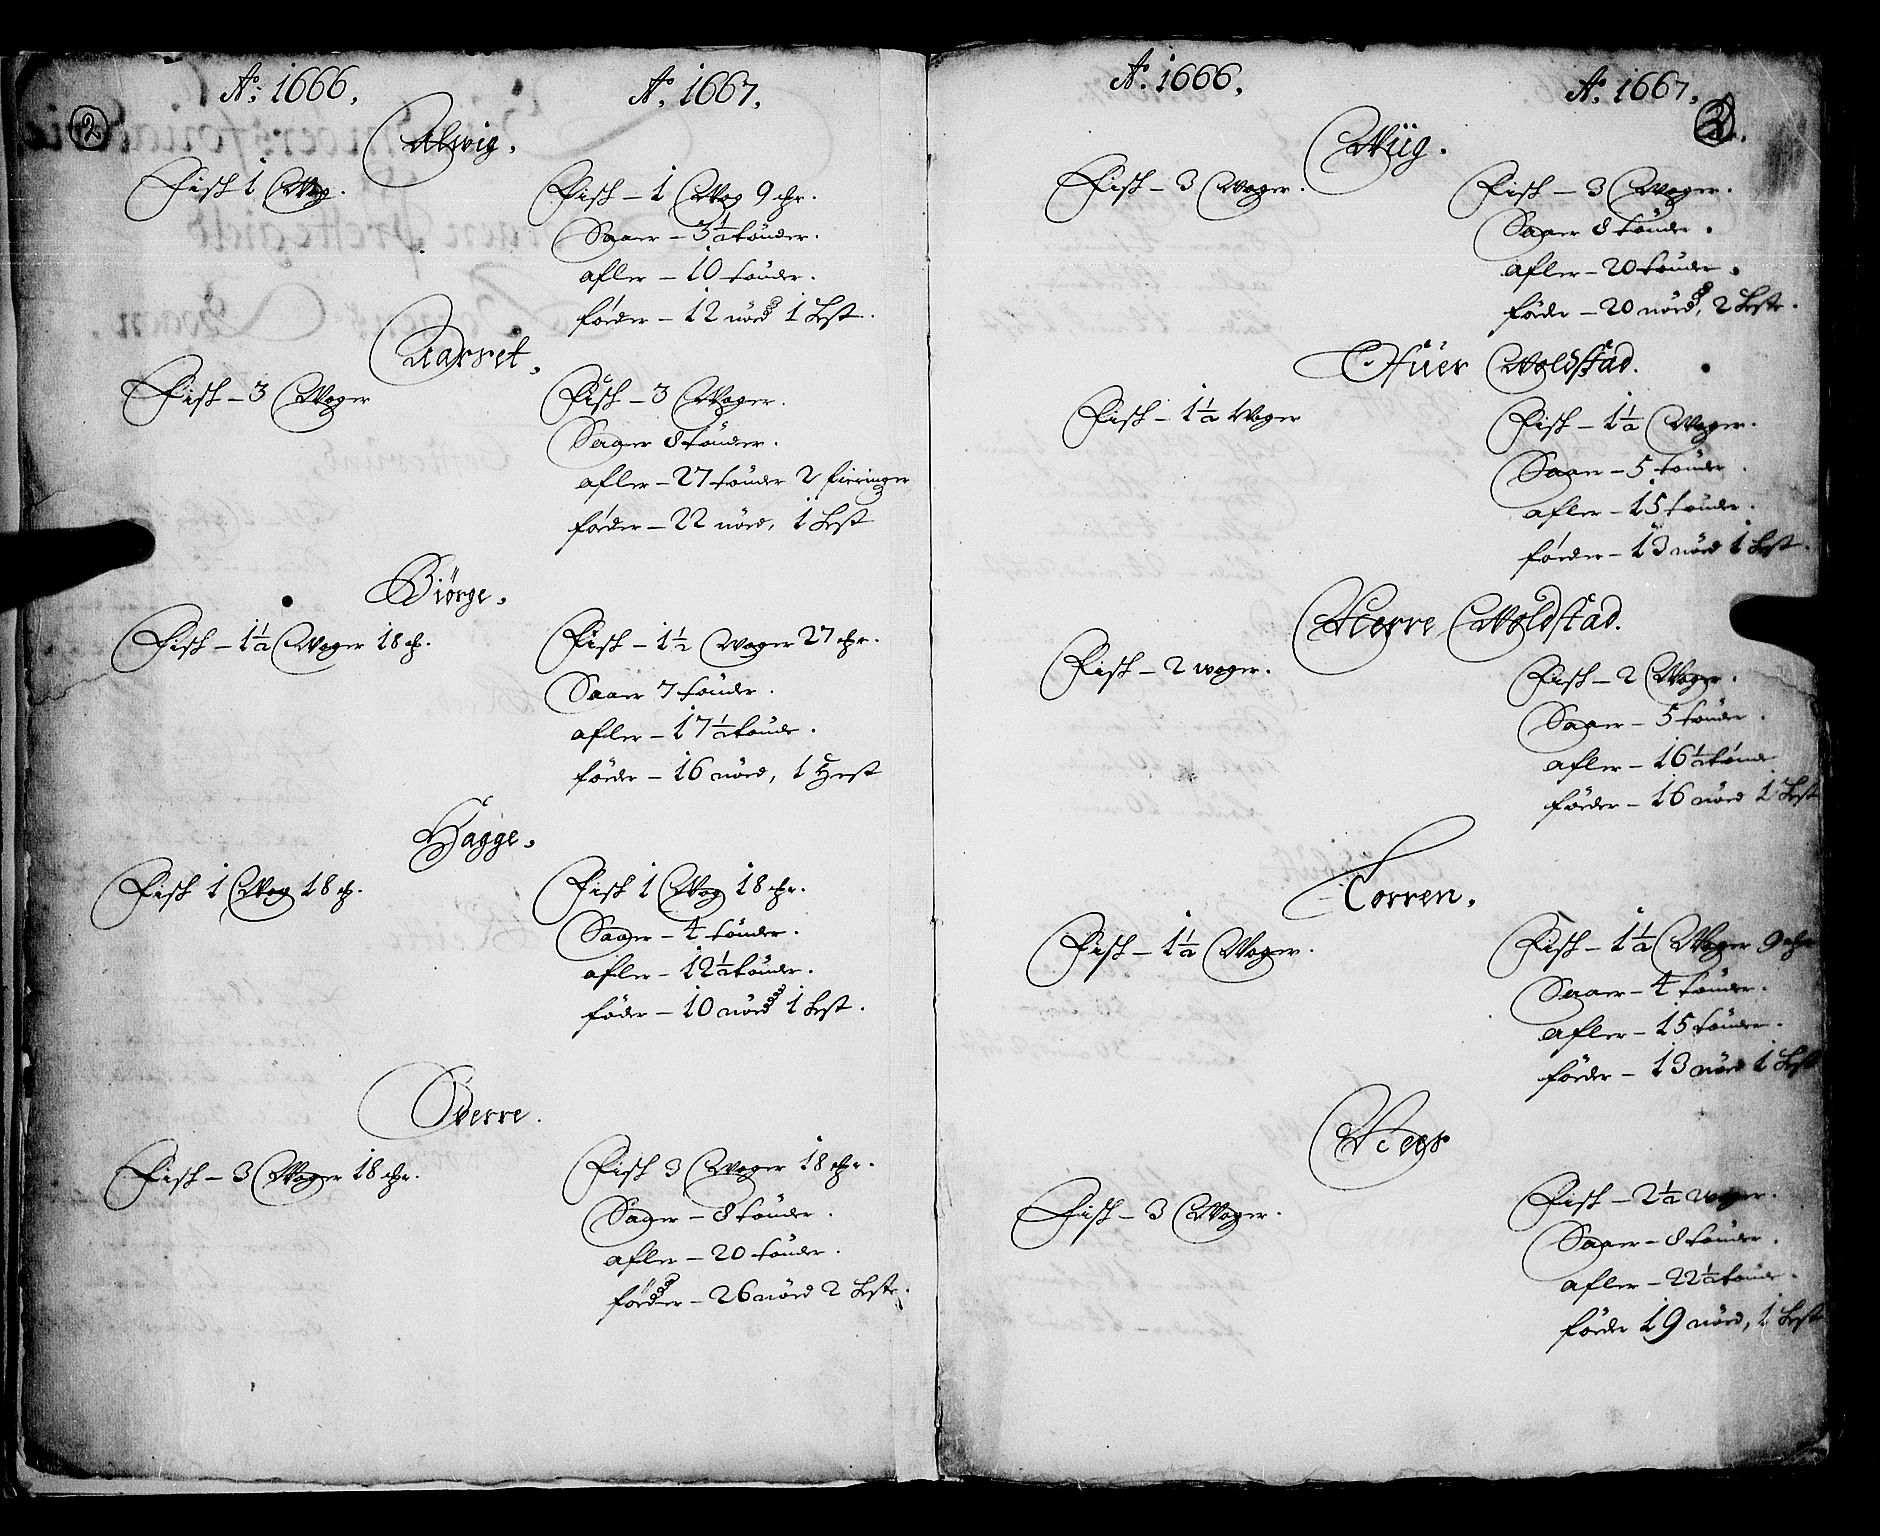 2
Ao. 1666, Ao. 1667,
Alwig,
Fisk 1 Wog.
Fisk - 1 Wog 9 mr.
Saaer - 3 1/2 tönder.
afler - 10 tönder.
föeder - 12 nöed 1 Hest.
Aarset,
Fisk - 3 Woger
Fisk - 3 Woger.
Saaer 8 tönder.
afler - 27 tönder 2 fieringer
föeder - 22 nöed, 1 Hest
Biörge,
Fisk - 1 1/2 Woger 18 mr.
Fisk - 1 1/2 Woger 27 mr.
Saaer 7 tönder.
afler - 17 1/2 tönder.
föeder - 16 nöed, 1 Hest
Hagge,
Fisk 1 Wog 18 mr.
Fisk 1 Wog 18 mr.
Saaer - 4 tönder.
afler - 12 1/2 tönder.
föder - 10 nöed 1 Hest.
Öderre.
Fisk - 3 Woger 18 mr.
Fisk 3 Woger 18 mr.
Saaer - 8 tönder.
afler - 20 tönder.
föeder - 26 nöed 2 Heste.
Ao. 1666, Ao. 1667,
2.
Wiig.
Fisk - 3 Woger.
Fisk - 3 Woger.
Saaer 8 tönder.
afler - 20 tönder.
föede - 20 nöed, 2 Heste.
Öffuer Woldstad.
Fisk - 1 1/2 Woger
Fisk - 1 1/2 Woger.
Saaer - 5 tönder.
afler - 15 tönder.
föeder - 13 nöed 1 Hest.
Nerre Woldstad.
Fisk - 2 woger.
Fisk - 2 Woger.
Saaer - 5 tönder.
afler - 16 1/2 tönde
föeder - 16 nöed 1 Hest
Torren.
Fisk - 1 1/2 Woger.
Fisk - 1 1/2 Woger 9 mr
Saaer - 4 tönder.
afler - 15 tönder.
föeder - 13 nöed 1 Hest
Fisk - 3 Woger.
Fisk - 2 1/2 woger.
Saaer - 8 tönder.
afler - 22 1/2 tönder.
föeder 19 nöed, 1 Hest